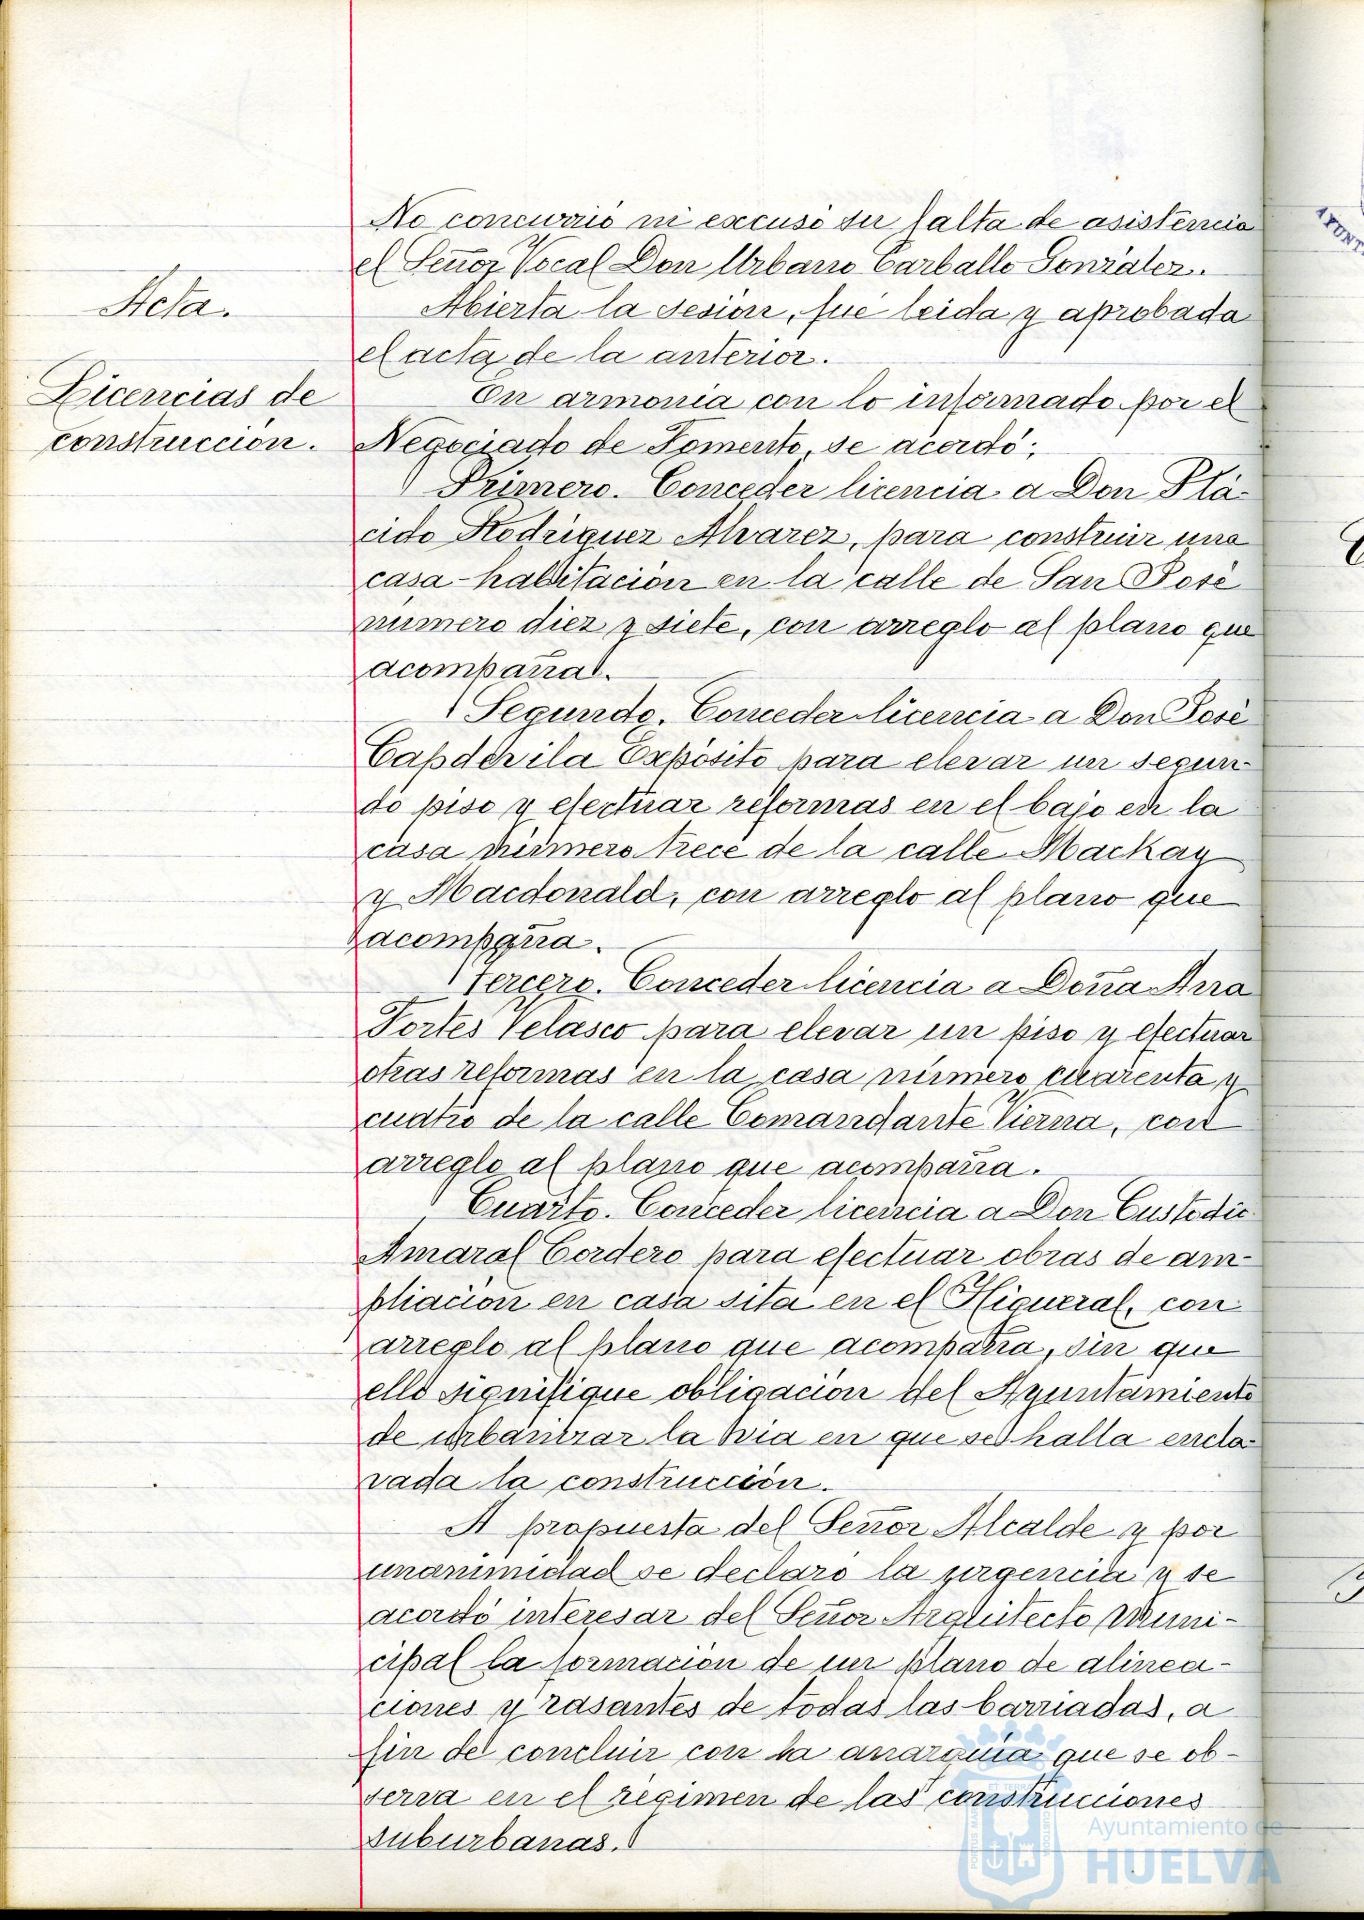 No concurrió ni excusó su falta de asistencia
el Señor Vocal Don Urbano Carballo González.
Acta.
Abierta la sesión, fué leida y aprobada
el acta de la anterior.
Licencias de
construcción.
En armonía con lo informado por el
Negociado de Fomento, se acordó;
Primero. Conceder licencia a Don Plá-
cido Rodríguez Alvarez, para construir una
casa-habitación en la calle de San José
número diez y siete, con arreglo al plano que
acompaña.
Segundo. Conceder licencia a Don José
Capdevila Expósito para elevar un segun-
do piso y efectuar reformas en el bajo en la
casa número trece de la calle Mackay
y Macdonald, con arreglo al plano que
acompaña.
Tercero. Conceder licencia a Doña Ana
Fortes Velasco para elevar un piso y efectuar
otras reformas en la casa número cuarenta y
cuatro de la calle Comandante Vierna, con
arreglo al plano que acompaña.
Cuarto. Conceder licencia a Don Custodio
Amaral Cordero para efectuar obras de am-
pliación en casa sita en el Higueral, con
arreglo al plano que acompaña, sin que
ello signifique obligación del Ayuntamiento
de urbanizar la vía en que se halla encla-
vada la construcción.
A propuesta del Señor Alcalde y por
unanimidad se declaró la urgencia y se
acordó interesar del Señor Arquitecto Muni-
cipal la formación de un plano de alinea-
ciones y rasantes de todas las barriadas, a
fin de concluir con la anarquía que se ob-
serva en el régimen de las construcciones
suburbanas.
Ayuntamiento de
HUELVA